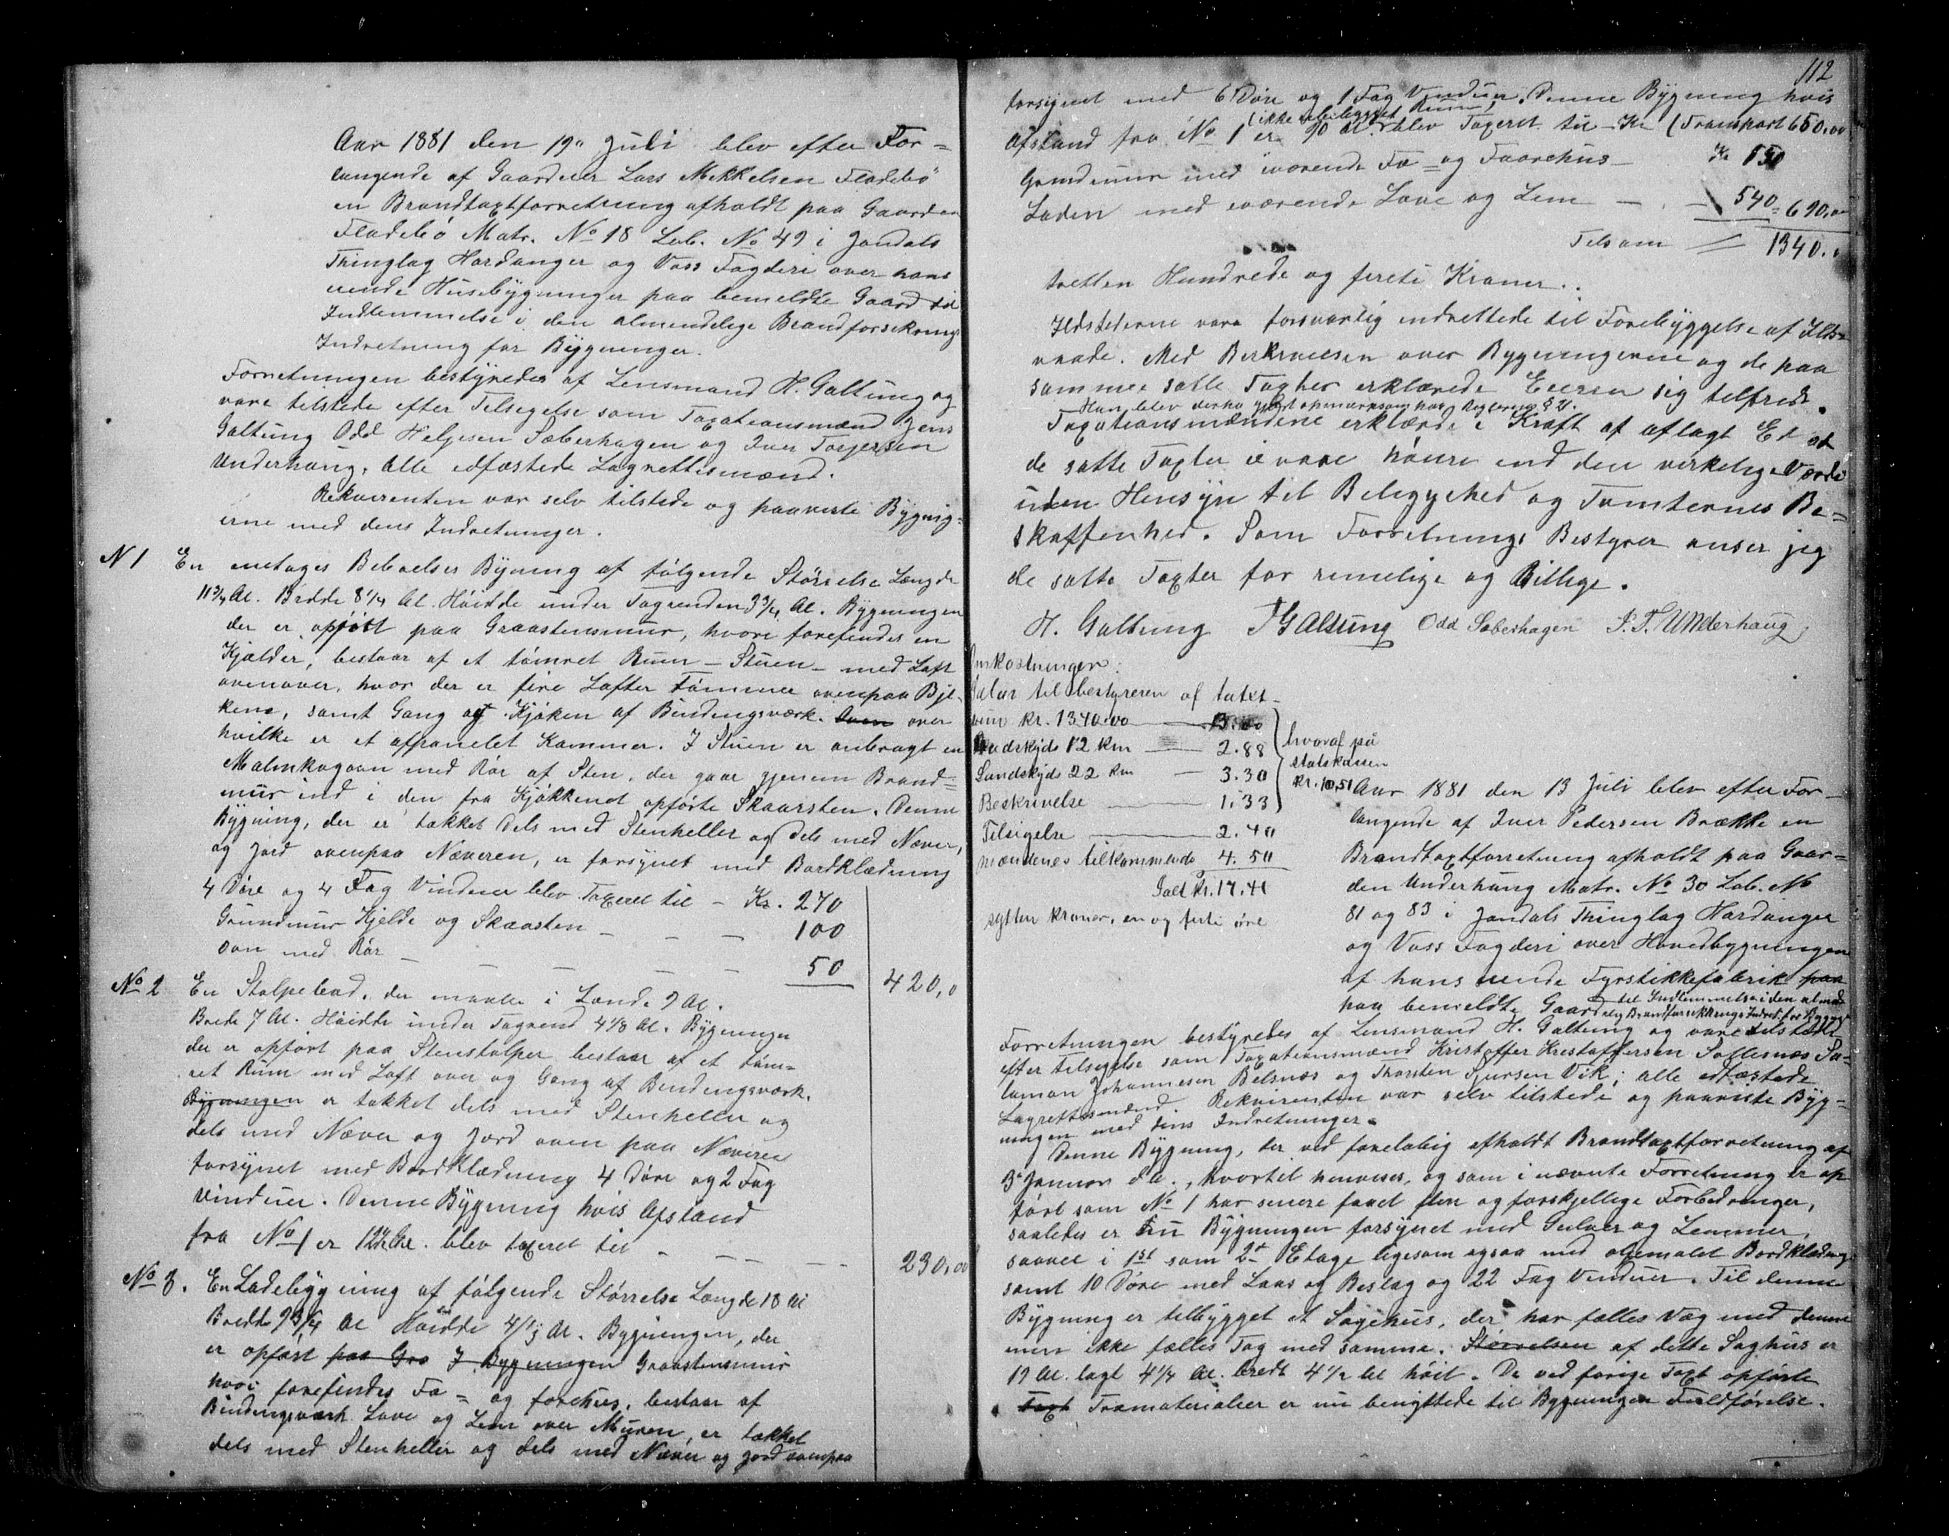 Aar 1881 den 19. Juli blev efter For-
langende af Gaardeier Lars Mikkelsen Fladebø
en Brandtaxtforretning afholdt paa Gaarden
Fladebø Matr. No 18 Løb. No 49 i Jondals
Thinglag Hardanger og Voss Fogderi over hans
eiende Husebygninger paa bemeldte Gaard til
Indlemmelse i den almendelige Brandforsikrings
Indretning for Bygninger.
Forretningen bestyredes af Lensmand H. Galtung og
vare tilstede efter Tilsigelse som Taxationsmænd Jens
Galtung Odd Helgesen Sæberhagen og Iver Torgersen
Underhaug, Alle edfæstede Lagrettismænd.
Rekvirenten var selv tilstede og paaviste Bygnig-
erne med dens Indretninger.
N 1 En etages Beboelses Bÿning af følgende Størrelse Længde
11 3/4 Al. Bredde 8 1/4 Al. Høidde under Tagrenden 3 3/4 Al. Bygningen
der er opført paa Graastensmur, hvori forefindes en
Kjælder, bestaar af et tømret Rum - Stuen - med Loft
ovenover, hvor der er fire Lofter Tømmer ovenpaa Bjel-
kene, samt Gang og Kjøken af Bindingsværk. Oven over
hvilke er et afpanelet Kammer. I Stuen er anbragt en
Malmkogovn med Rør af Sten, der gaar gjenem Brand-
mur ind i den fra Kjøkkenet opførte Skaarsten. Denne
Bygning, der er tækket dels med Stenheller og dels med Næver,
og Jord ovenpaa Næveren, er forsynet med Bordklædning
4 Døre og 4 Fag Vinduer blev Taxeret til - Kr. 270
Grundmur Kjelde og Skaasten - - - 100
Ovn med Rør - - - - - 50 420,0
No 2 En Stolpebod, der maaler i Lænde 9 Al.
Brede 7 Al. Høidde under Tagrend 4 1/8 Al. Bygningen
der er opført paa Stenstolper bestaar af et tøm-
ret Rum med Loft over og Gang af Bindingsværk.
Bygningen er tækket dels med Stenheller og
dels med Næver og Jord oven paa Næveren
forsynet med Bordklædning 4 Døre og 2 Fag
Vinduer. Denne Bygning hvis Afstand
fra No 1 er 12 1/2 Al. blev taxeret til - - - 230,00
No 3. En Ladebygning af følgende Størrelse Længde 18 Al
Bredde 9 3/4 Al Høidde 4 1/2 Al. Bygningen, der
er opført paa Gra I Bygningen Graastensmur
hvori forefindes Fæ- og forehus, bestaar af
Bindingsværk Lave og Lem over Muren, er tækket
dels med Stenheller og dels med Næver og Jord ovenpaa
112
forsynet med 6 Døre og 1 Fag Vinduer. Denne Bygning hvis
(ikke Rum)
Afstand fra No 1 er 90 Al blev Taxeret til - Kr (Transport 650,00
Grundmur med værende Fæ- og Faarehus - Kr 150
Laden med værende Lave og Lem - - 540 = 690,00
Tilsam 1340.0
tretten Hundrede og føreti Kroner.
Ildstederne vare forsvarlig indrettede til Forebyggelse af Ilds-
vaade. Med Beskrivelsen over Bygningerne og de paa
samme satte Taxter erklærede Eieren sig tilfreds.
Han blev derhos gjort opmærksom paa
Taxationsmændene erklærde i Kraft af aflagt Ed at
de satte Taxter ei vare høiere end den virkelige Værdi
uden Hensyn til Beliggehed og Tomternes Be-
skaffenhed. Som Forretnings Bestyrer anser jeg
de satte Taxter for rimelige og Billige.
H. Galtung J Galtung Odd Sæberhagen I. T. Underhaug
Omkostninger:
Salær til bestyreren af takst-
sum kr. 1340.00 - 3.00
Baadskyds 12 km - 2.88
Landskyds 22 km - 3.30
Beskrivelse - 1.33
hvoraf på
statskassen
kr. 10,51
Tilsigelse - 2.40
mændenes tilkommende 4.50
Ialt kr. 17.41
sytten kroner, en og førti øre
Aar 1881 den 13 Juli blev efter For-
langende af Iver Pedersen Brække en
Brandtaxtforretning afholdt paa Gaar-
den Underhaug Matr. No 30 Løb. No
81 og 83 i Jondals Thinglag Hardanger
og Voss Fogderi over Hovedbygningen
af hans eiende Fyrstikkefabrik paa
paa bemeldte Gaard til Indlemmelse i den almin-
delig Brandforsikkrings Indret. for Bygn.
Forretningen bestyredes af Lensmand H. Galtung og vare tilstede
efter Tilsigelse som Taxationsmænd Kristoffer Kristoffersen Sollesnæs Sa-
lamon Johannesen Belsnæs og Thorsten Sjursen Vik; alle edfæstede
Lagrettesmænd. Rekvirenten var selv tilstede og paaviste Byg-
ningen med dens Indretninger.
Denne Bygning, der ved foreløbig afholdt Brandtaxtforretning af
3. Januar d. A., hvortil henvises, og som i nævnte Forretning er op
ført som No 1 har senere faaet flere og forskjellige Forbedringer,
saaledes er nu Bygningen forsynet med Gulver og Lemmer
saavel i 1st som 2d Etage ligesom ogsaa med opmalet Bordklædning
samt 10 Døre med Laas og Beslag og 22 Fag Vinduer. Til denne
Bygning er tilbygget et Sagehus, der har fælles Væg med denne
men ikke fælles Tag med samme. Størrelsen af dette Saghus er
19 Al. lagt 4 1/4 Al. bredt 4 1/2 Al høit. De ved forige Taxt opførte
Taxt Træmaterialier er nu benyttede til Bygningen Fuldførelse.